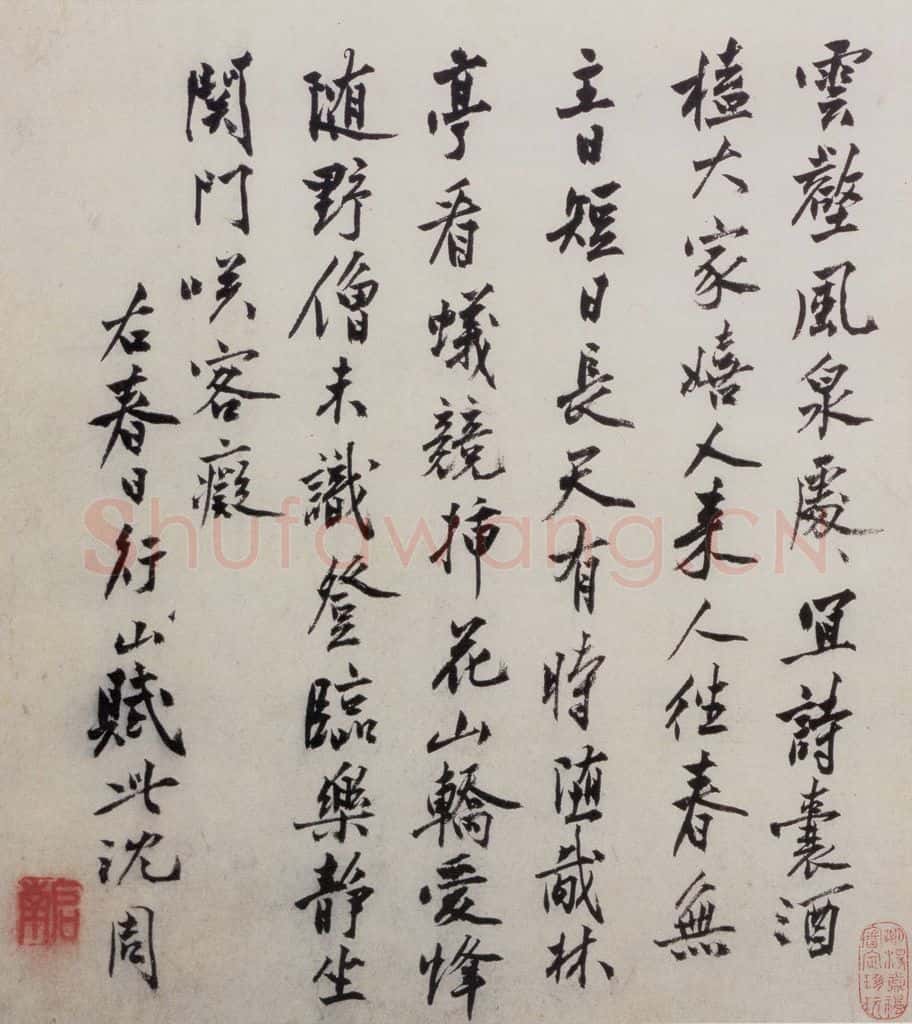 雲壑風泉處、宜詩囊酒
榼大家嬉人来人往春無
主日短日長天有時林
亭看蟻競插花山轎愛蜂
随野僧未識登臨樂静坐
関門咲客癡
右春日行山賦此沈周
啓南
Shufawang.CN